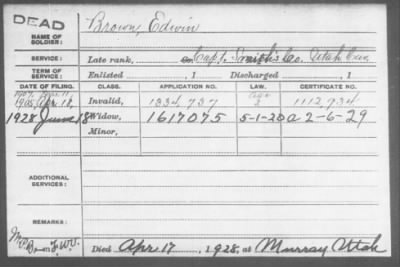 DEAD
NAME OF SOLDIER: Brown, Edwin
SERVICE: Late rank, Capt. Smith's Co. Utah Cav.
TERM OF SERVICE: Enlisted , 1 Discharged , 1
DATE OF FILING. CLASS. APPLICATION NO. LAW. CERTIFICATE NO.
Invalid, 1334,737 1112,734
1928 June 18 Widow, 1617075 5-1-20 a 2-6-29
Minor,
ADDITIONAL SERVICES:
REMARKS:
Died Apr. 17, 1928, at Murray Utah